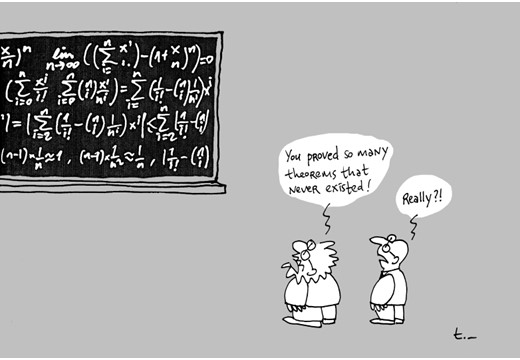 x/n)ⁿ lim n→∞ ((∑ i= n xⁱ i.)-(1+x/n)ⁿ)=0
(∑ i=0 n xⁱ/i! ∑ i=0 n (n i)xⁱ/nⁱ)=∑ i= n (1/i!-(n i)1/nⁱ)xⁱ
=|∑ i=2 n (1/i!-(n i)1/nⁱ)×ⁱ|≤∑ i=2 n |1/i!-(n i)
(n-1)×1/n≈1, (n-1)×1/n²≈1/n, |1/i!-(n i)
You proved so many
theorems that
never existed!
Really?!
t._